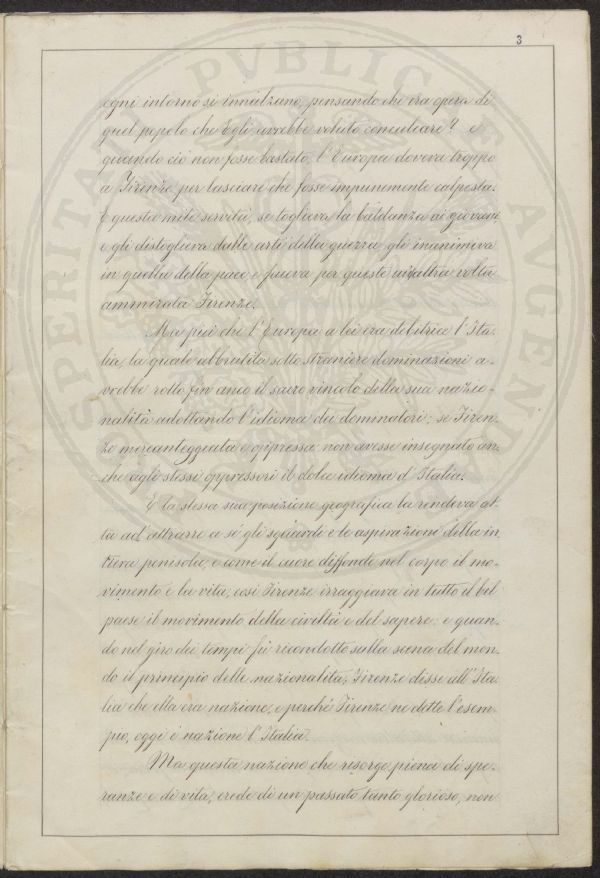 3
ogni intorno si innalzano, pensando che era opera di
quel popolo che Egli avrebbe voluto conculcare? e
quando ciò non fosse bastato, l'Europa doveva troppo
a Firenze per lasciare che fosse impunemente calpesta.
E questa mite servitù, se toglieva la baldanza ai giovani
e gli distoglieva dalle arti della guerra gli inanimiva
in quella della pace e faceva per queste un'altra volta
ammirata Firenze.
Ma più che l'Europa a lei era debitrice l'Ita-
lia, la quale abbrutita sotto straniere dominazioni a-
vrebbe rotto fin anco il sacro vincolo della sua nazio-
nalità adottando l'idioma dei dominatori; se Firen-
ze mercanteggiata e oppressa non avesse insegnato an-
che agli stessi oppressori il dolce idioma d'Italia.
E la stessa sua posizione geografica la rendeva at-
ta ad attrarre a sé gli sguardi e le aspirazioni della in-
tiera penisola, e come il cuore diffonde nel corpo il mo-
vimento e la vita, così Firenze irraggiava in tutto il bel
paese il movimento della civiltà e del sapere; e quan-
do nel giro dei tempi fù ricondotto sulla scena del mon-
do il principio delle nazionalità, Firenze disse all'Ita-
lia che ella era nazione, e perché Firenze ne dette l'esem-
pio, oggi è nazione l'Italia.
Ma questa nazione che risorge piena di spe-
ranze e di vita, erede di un passato tanto glorioso, non